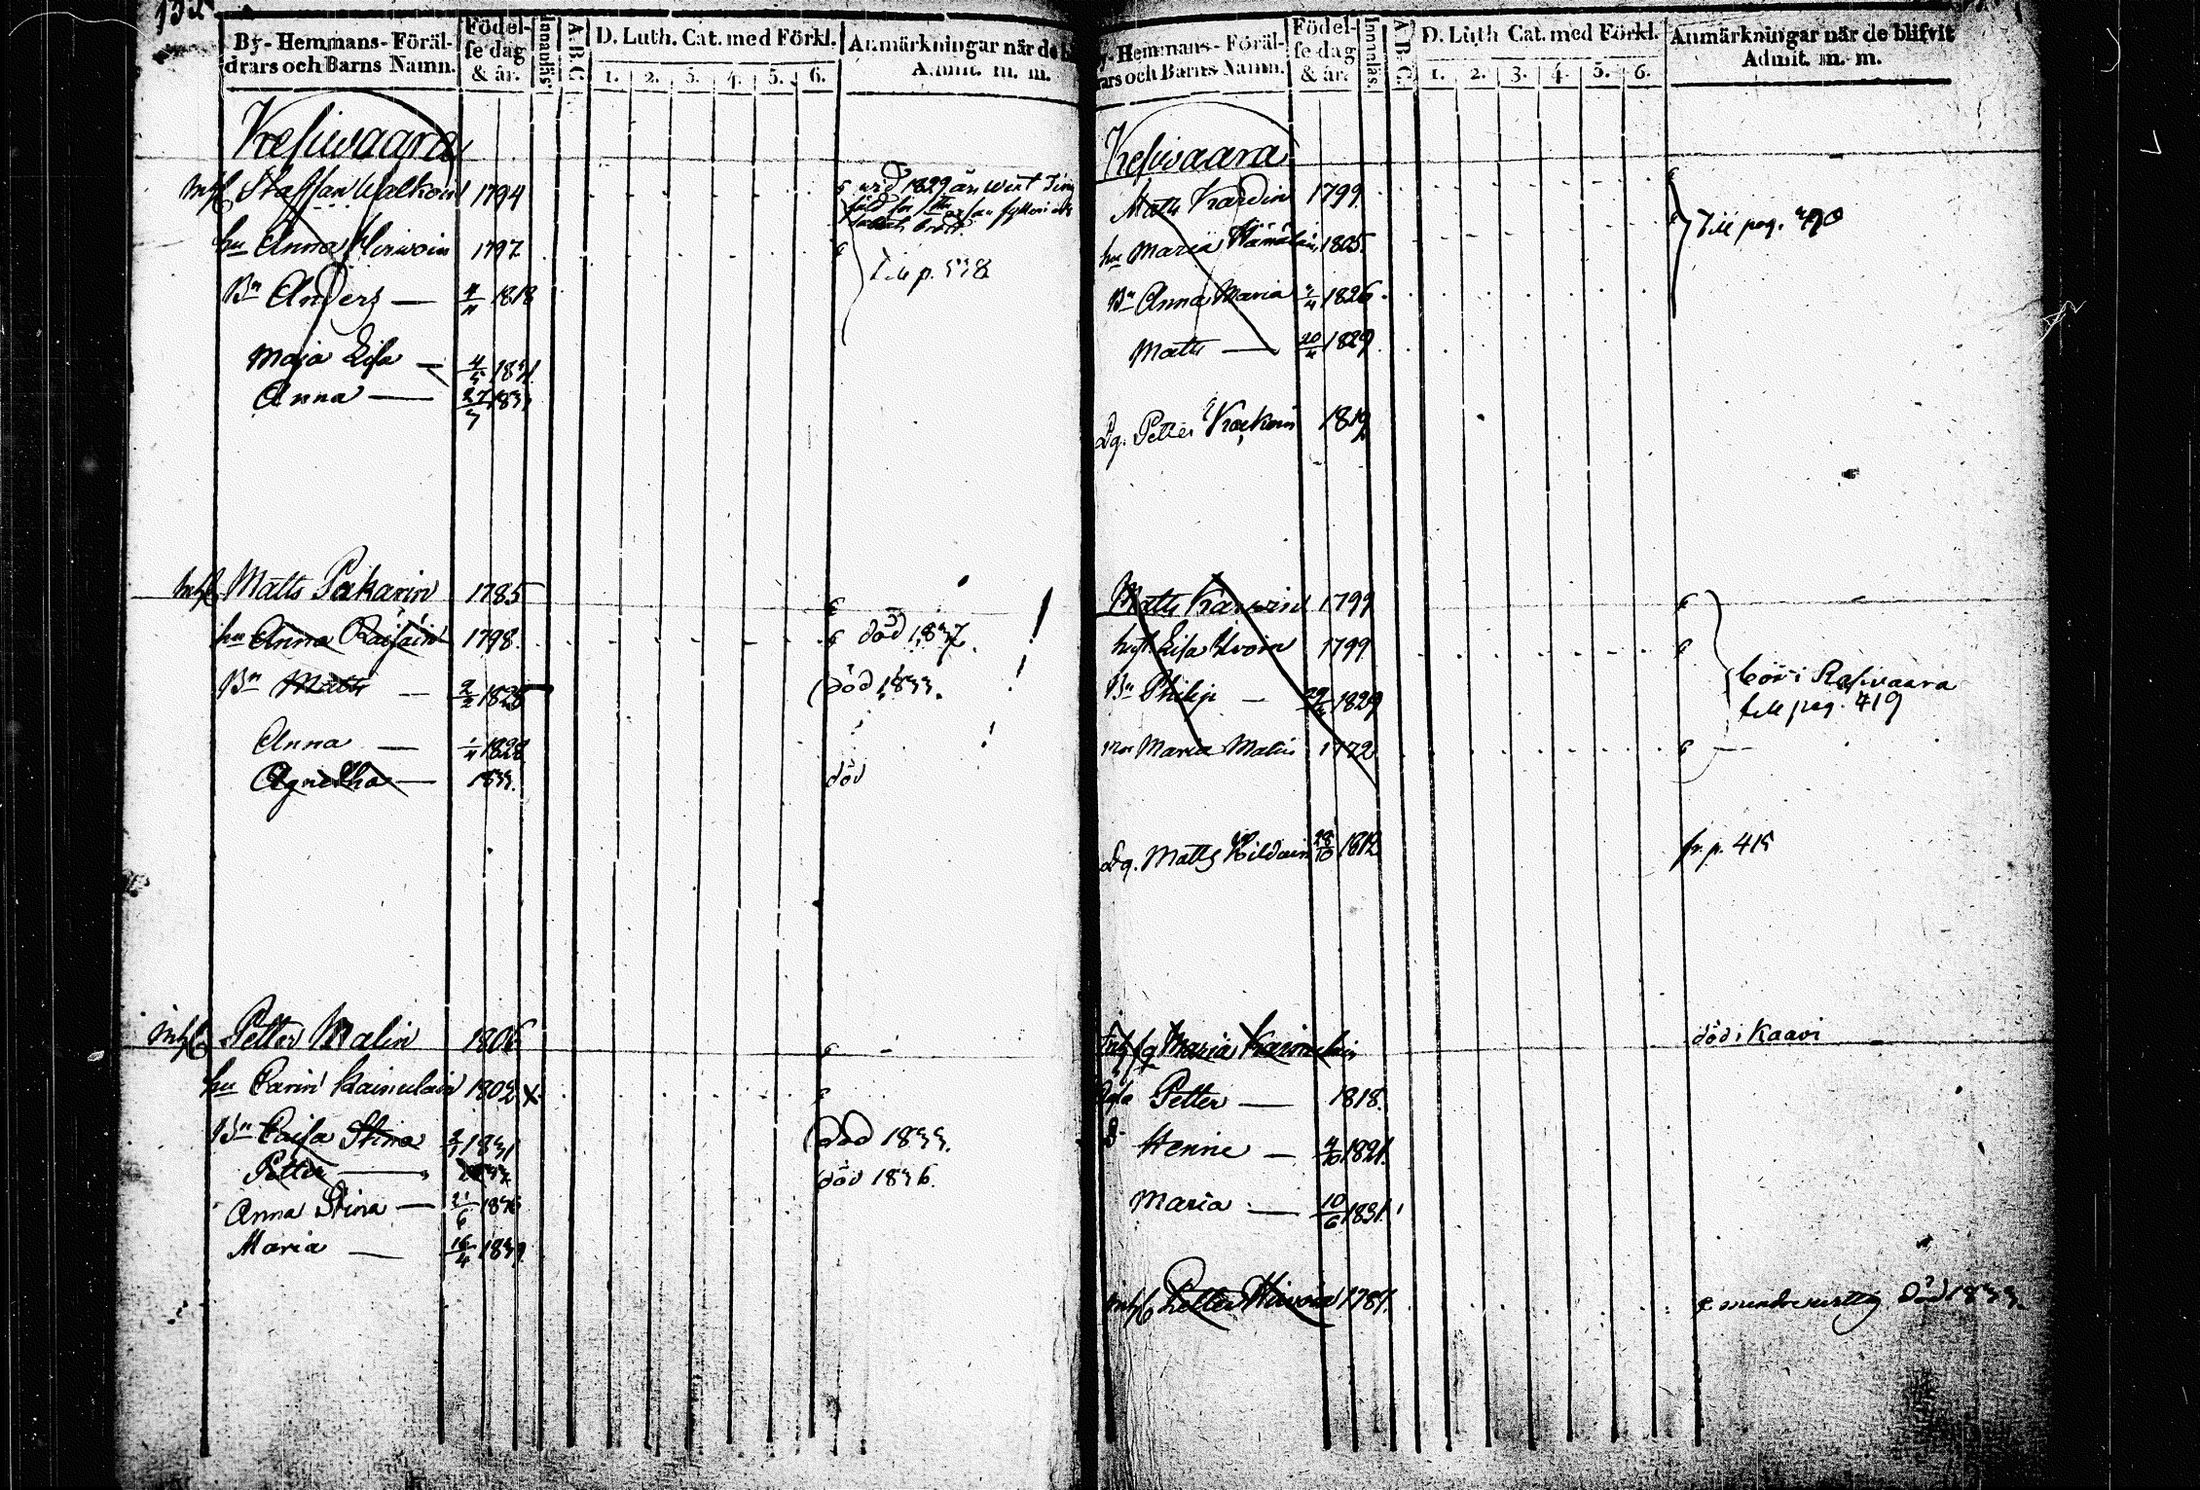 132
By- Hemmans- Föräl-
drars och Barns Namn.
Födel-
se dag
& år.
Innanläs.
A.B.C.
D. Luth. Cat. med Förkl.
1. 2. 3. 4. 5. 6.
Anmärkningar när de b
Admit. m. m.
Kesiwaara
Staffan Walkoin 1794
hu Anna Hirwoin 1797
Till p. 538
Bn Anders — 1818
Maja Lisa — 4/5 1831
Anna — 27/3 1833
Matts Pakarin 1785
hu Anna Raisäin 1798. död 1837.
Bn Matts — 2/2 1825 död 1833.
Anna — 1828
Agnetha — 1833. död
Petter Malin 1806
hu Carin Kainulain 1802 x
Bn Caisa Stina 1831 död 1833.
Petter — död 1836.
Anna Stina — 21/6 1836
Maria — 16/4 1839
y- Hemmans- Föräl-
rars och Barns Namn.
Födel-
se dag
& år.
Innanläs.
A.B.C.
D. Luth Cat. med Förkl.
1. 2. 3. 4. 5. 6.
Anmärkningar när de blifvit
Admit. m. m.
Kesiwaara
Matts 1799
Till pag. 490
hu Maria Hämäläin 1805.
Bn Anna Maria 1826
Matts — 1829
Dg. Petter 1819
Matts 1799
Lisa Hirvoin 1799
Bn Philip — 1829
bor i Rasivaara
till pag. 419
Maria Malin 1772
Dg. Matts Hildain 28/10 1812 fr. p. 415
Maria död i Kaavi
Petter — 1818.
Henric — 1821.
Maria — 10/6 1831.
Petter Hirvoin 1787. död 1833.